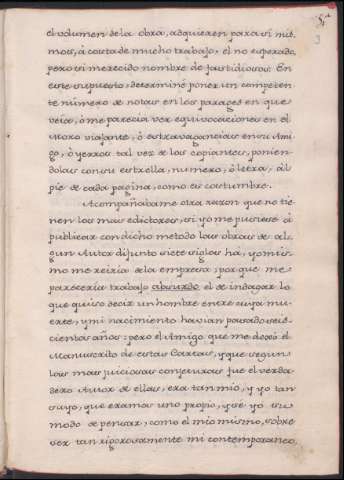 5ª
3
el volumen de la obra, adquieren para sí mis-
mos, á costa de mucho trabajo, el no esperado,
pero sí merecido nombre de fastidiosos. En
este supuesto, determiné poner un competen-
te número de notas en los parages en que
veía, ó me parecia ver equivocaciones en el
Moro viajante, ó estravagancias en su Ami-
go, ó yerros tal vez de los copiantes, ponien-
dolas con su estrella, numero, ó letra, al
pie de cada pagina, como es costumbre.
Acompañabame otra razon que no tie-
nen los mas edictores; si yo me pusiese á
publicar con dicho metodo las obras de al-
gun Autor difunto siete siglos há, yo mis-
mo me reiria de la empresa, porque me
pareceria trabajo absurdo el de indagar lo
que quiso decir un hombre entre cuya mu-
erte, y mi nacimiento havian pasado seis-
cientos años: pero el Amigo que me dexó el
Manuscrito de estas Cartas, y que segun
las mas juiciosas conjeturas fue el verda-
dero Autor de ellas, era tan mio, y yo tan
suyo, que eramos uno propio, y sé yo su
modo de pensar, como el mio mismo, sobre
ser tan rigorosamente mi contemporaneo,